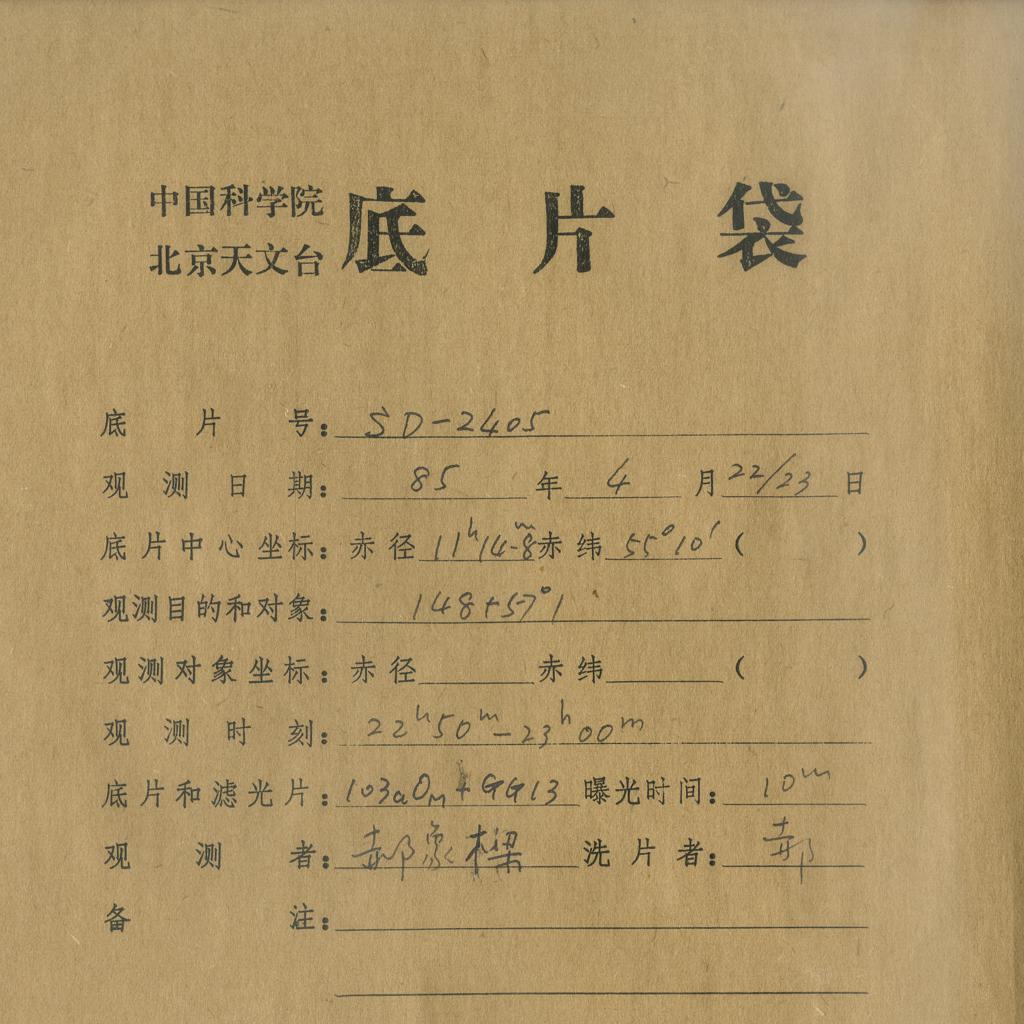 中国科学院
北京天文台
底片袋
底片号：SD-2405
观测日期：85年4月22/23日
底片中心坐标：赤径11ʰ14.8ᵐ赤纬55°10′（ ）
观测目的和对象：148+57°1
观测对象坐标：赤径 赤纬 （ ）
观测时刻：22ʰ50ᵐ-23ʰ00ᵐ
底片和滤光片：103aOₘ+GG13 曝光时间：10ᵐ
观测者：郝象樑 洗片者：郝
备注：